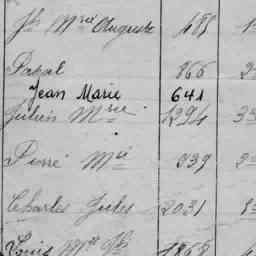 Jh Mie Auguste 485
Pascal 866
Jean Marie 641
Julien Mie 1294
Pierre Mie 939
Charles Jules 2031
Louis Mie Jh 1868